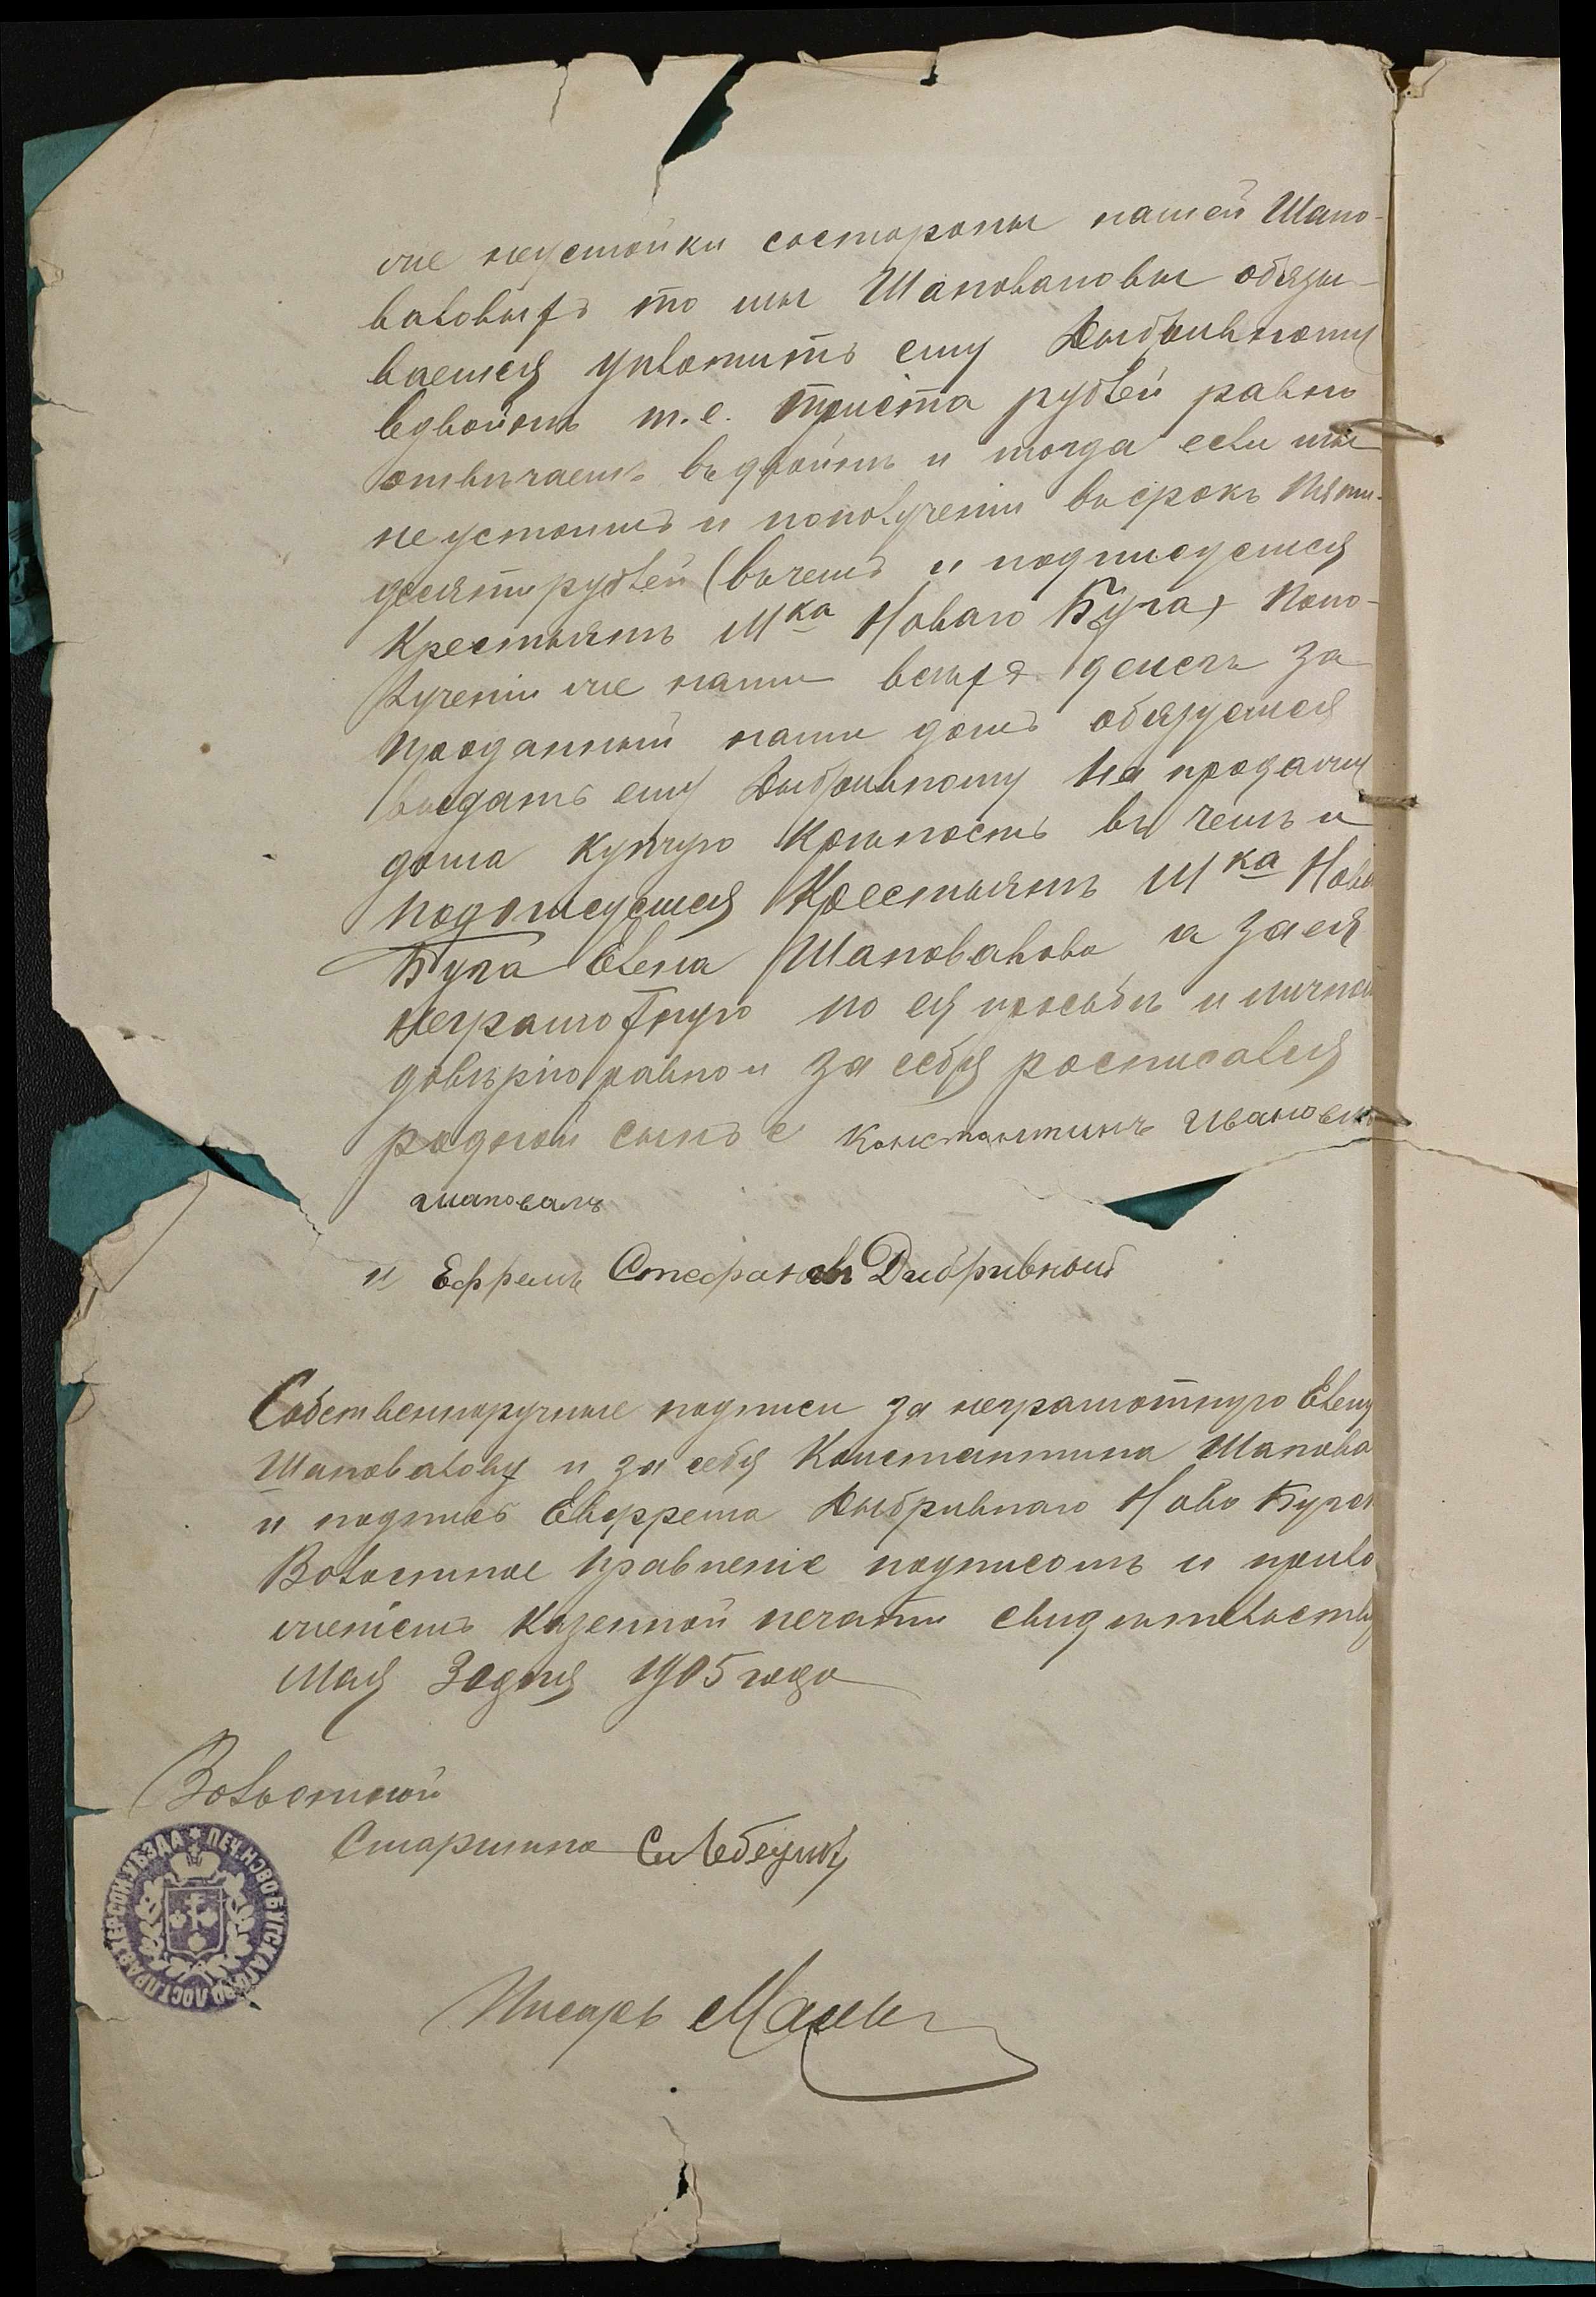 же неустойки состороны нашей Шапо-
валовыхъ то мы Шаповаловы обязы-
ваемся уплотить ему Дыбривному
вдвойнъ т.е. триста рублей равно
отвъчаемъ въ двойнъ и тогда если мы
не устоимъ и пополученіи въ срокъ Пяти-
десяти рублей (въ чемъ и подписуемся
Крестьянъ Мка Новаго Буга) Попо-
лученіи же нами всъхъ денегъ за
проданный нами домъ обязуемся
выдать ему Дыбривному На продажу
дома купчую Кръпость въ чемъ и
подписуемся Крестьянъ Мка Ново
Буга Елена Шаповалова а за ея
неграмотную по ея просьбъ и лично
довърію равно и за себя росписался
родной сынъ Константинъ Иванов
шаповалъ
и Ефремъ Стефановъ Дибривный
Собственноручные подписи за неграмотную Елену
Шаповалову и за себя Константина Шапова
и подпись Евфрема Дыбривнаго Ново Буск
Волостное правленіе подписомъ и прило
женіемъ казенной печати свидътельству
Мая 30 дня 1905 года
Волостной
Старшина
Писарь
ПЕЧ. НОВО БУГСКАГО ВОЛОСТ. ПРАВ. ХЕРСОН. УѢЗДА